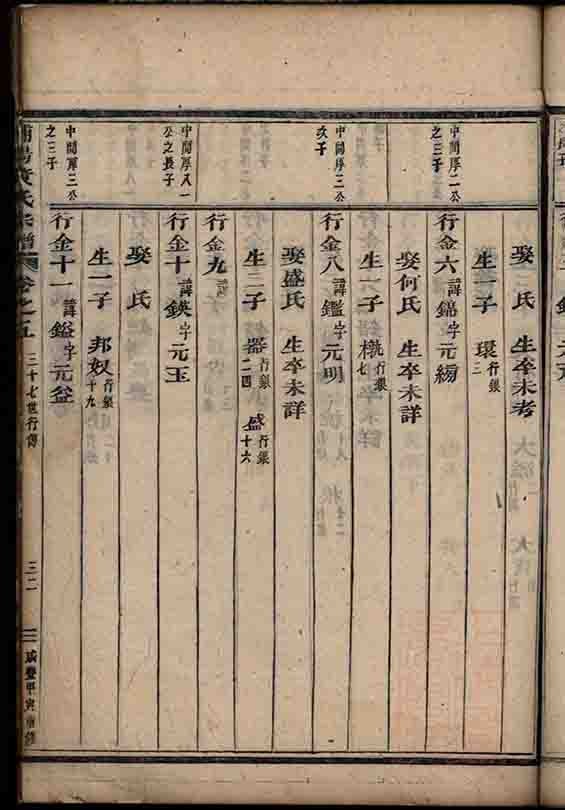 娶 氏 生卒未考
生一子 環行銀三
中間厚二公之三子
行金六諱錦字元綉
娶何氏 生卒未詳
生一子 行銀七
中間厚三公次子
行金八諱鑑字元明
娶盛氏 生卒未詳
生二子 器行銀二四 盛行銀十六
行金九諱
中間厚八一公之長子
行金十諱鍈字元玉
娶 氏
生一子 邦奴行銀十九
中間厚三公之三子
行金十一諱鎰字元益
黄氏宗譜 卷之五 三十七世行傳 三二 咸豐甲寅重修